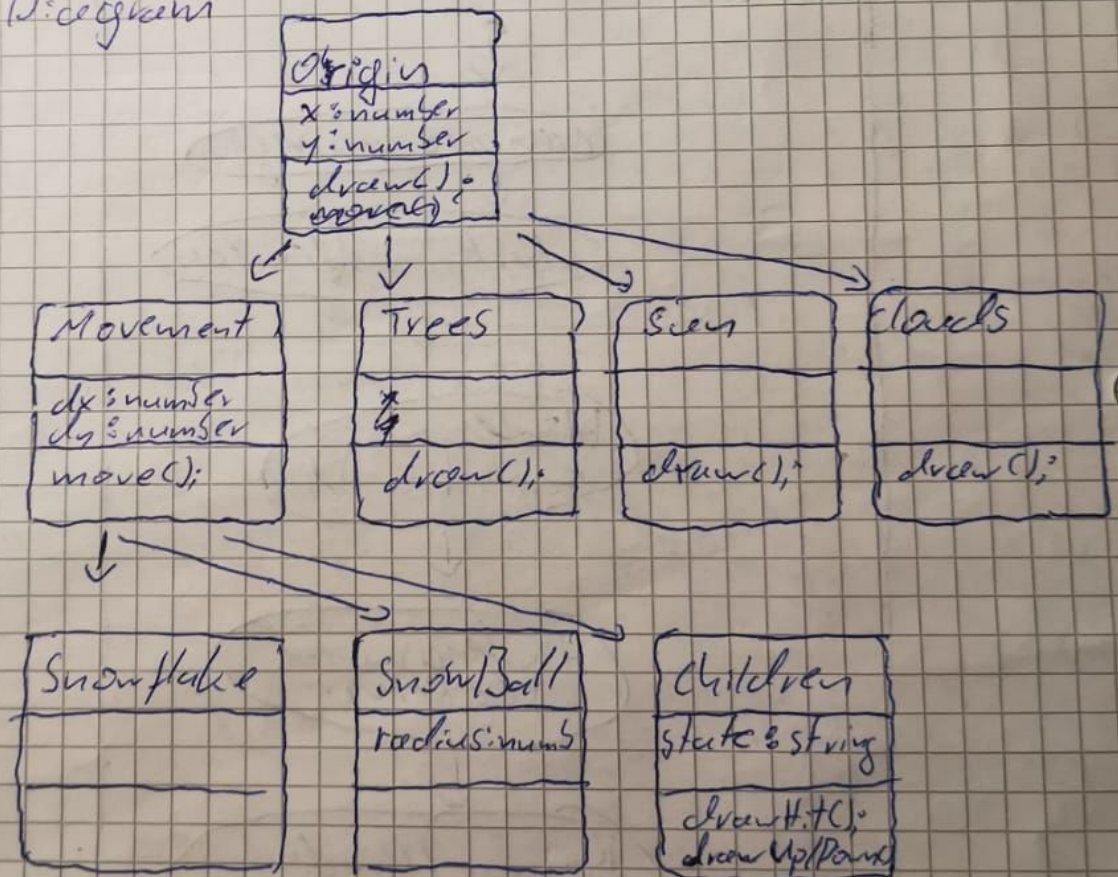 Diagram
Origin
x:number
y:number
draw();
Movement
dx:number
dy:number
move();
Trees
draw();
Sun
draw();
Clouds
draw();
Snowflake
SnowBall
radius:numb
Children
state:string
drawHit();
drawUp/Down